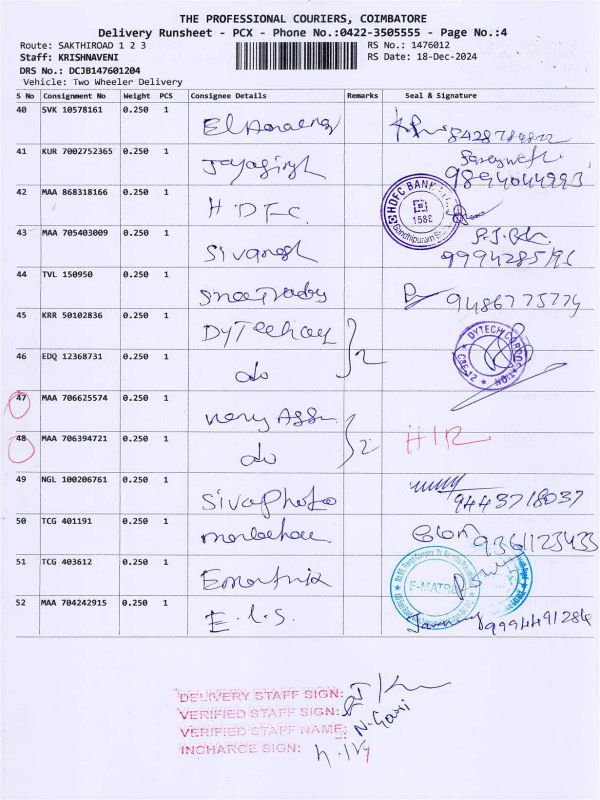 THE PROFESSIONAL COURIERS, COIMBATORE
Delivery Runsheet - PCX - Phone No.:0422-3505555 - Page No.:4
Route: SAKTHIROAD 1 2 3 RS No.: 1476012
Staff: KRISHNAVENI RS Date: 18-Dec-2024
DRS No.: DCJB147601204
Vehicle: Two Wheeler Delivery
S No Consignment No Weight PCS Consignee Details Remarks Seal & Signature
40 SVK 10578161 0.250 1
41 KUR 7002752365 0.250 1 9894044993
42 MAA 868318166 0.250 1 HDFC HDFC BANK 1588 Gandhipuram
43 MAA 705403009 0.250 1 Sivangsh
44 TVL 150950 0.250 1 9486775774
45 KRR 50102836 0.250 1 DyTechcoy 2 DYTECH CORPORATION CBE-12
46 EDQ 12368731 0.250 1 do
47 MAA 706625574 0.250 1
48 MAA 706394721 0.250 1 do 2 HIR
49 NGL 100206761 0.250 1 Sivaphoto 9443718037
50 TCG 401191 0.250 1 9361123433
51 TCG 403612 0.250 1 Ematrix E-MATRIX
52 MAA 704242915 0.250 1 E.L.S. 9994491284
DELIVERY STAFF SIGN:
VERIFIED STAFF SIGN:
VERIFIED STAFF NAME: N. Gowri
INCHARGE SIGN: